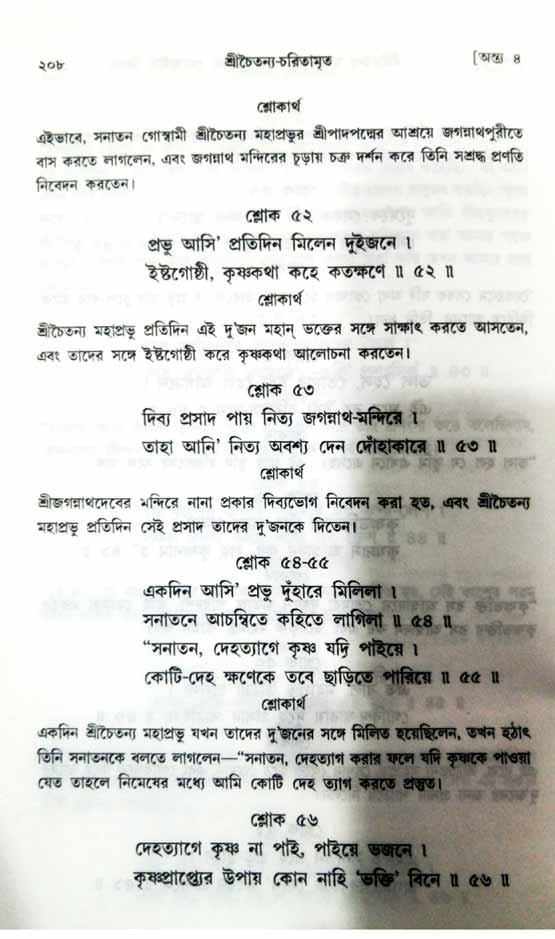 ২০৮ শ্রীচৈতন্য-চরিতামৃত [অন্ত্য ৪
শ্লোকার্থ
এইভাবে, সনাতন গোস্বামী শ্রীচৈতন্য মহাপ্রভুর শ্রীপাদপদ্মের আশ্রয়ে জগন্নাথপুরীতে
বাস করতে লাগলেন, এবং জগন্নাথ মন্দিরের চূড়ায় চক্র দর্শন করে তিনি সশ্রদ্ধ প্রণতি
নিবেদন করতেন।
শ্লোক ৫২
প্রভু আসি' প্রতিদিন মিলেন দুইজনে ।
ইষ্টগোষ্ঠী, কৃষ্ণকথা কহে কতক্ষণে ॥ ৫২ ॥
শ্লোকার্থ
শ্রীচৈতন্য মহাপ্রভু প্রতিদিন এই দু'জন মহান্ ভক্তের সঙ্গে সাক্ষাৎ করতে আসতেন,
এবং তাদের সঙ্গে ইষ্টগোষ্ঠী করে কৃষ্ণকথা আলোচনা করতেন।
শ্লোক ৫৩
দিব্য প্রসাদ পায় নিত্য জগন্নাথ-মন্দিরে ।
তাহা আনি' নিত্য অবশ্য দেন দোঁহাকারে ॥ ৫৩ ॥
শ্লোকার্থ
শ্রীজগন্নাথদেবের মন্দিরে নানা প্রকার দিব্যভোগ নিবেদন করা হত, এবং শ্রীচৈতন্য
মহাপ্রভু প্রতিদিন সেই প্রসাদ তাদের দু'জনকে দিতেন।
শ্লোক ৫৪-৫৫
একদিন আসি' প্রভু দুঁহারে মিলিলা ।
সনাতনে আচম্বিতে কহিতে লাগিলা ॥ ৫৪ ॥
“সনাতন, দেহত্যাগে কৃষ্ণ যদি পাইয়ে ।
কোটি-দেহ ক্ষণেকে তবে ছাড়িতে পারিয়ে ॥ ৫৫ ॥
শ্লোকার্থ
একদিন শ্রীচৈতন্য মহাপ্রভু যখন তাদের দু'জনের সঙ্গে মিলিত হয়েছিলেন, তখন হঠাৎ
তিনি সনাতনকে বলতে লাগলেন—“সনাতন, দেহত্যাগ করার ফলে যদি কৃষ্ণকে পাওয়া
যেত তাহলে নিমেষের মধ্যে আমি কোটি দেহ ত্যাগ করতে প্রস্তুত।
শ্লোক ৫৬
দেহত্যাগে কৃষ্ণ না পাই, পাইয়ে ভজনে ।
কৃষ্ণপ্রাপ্ত্যের উপায় কোন নাহি 'ভক্তি' বিনে ॥ ৫৬ ॥